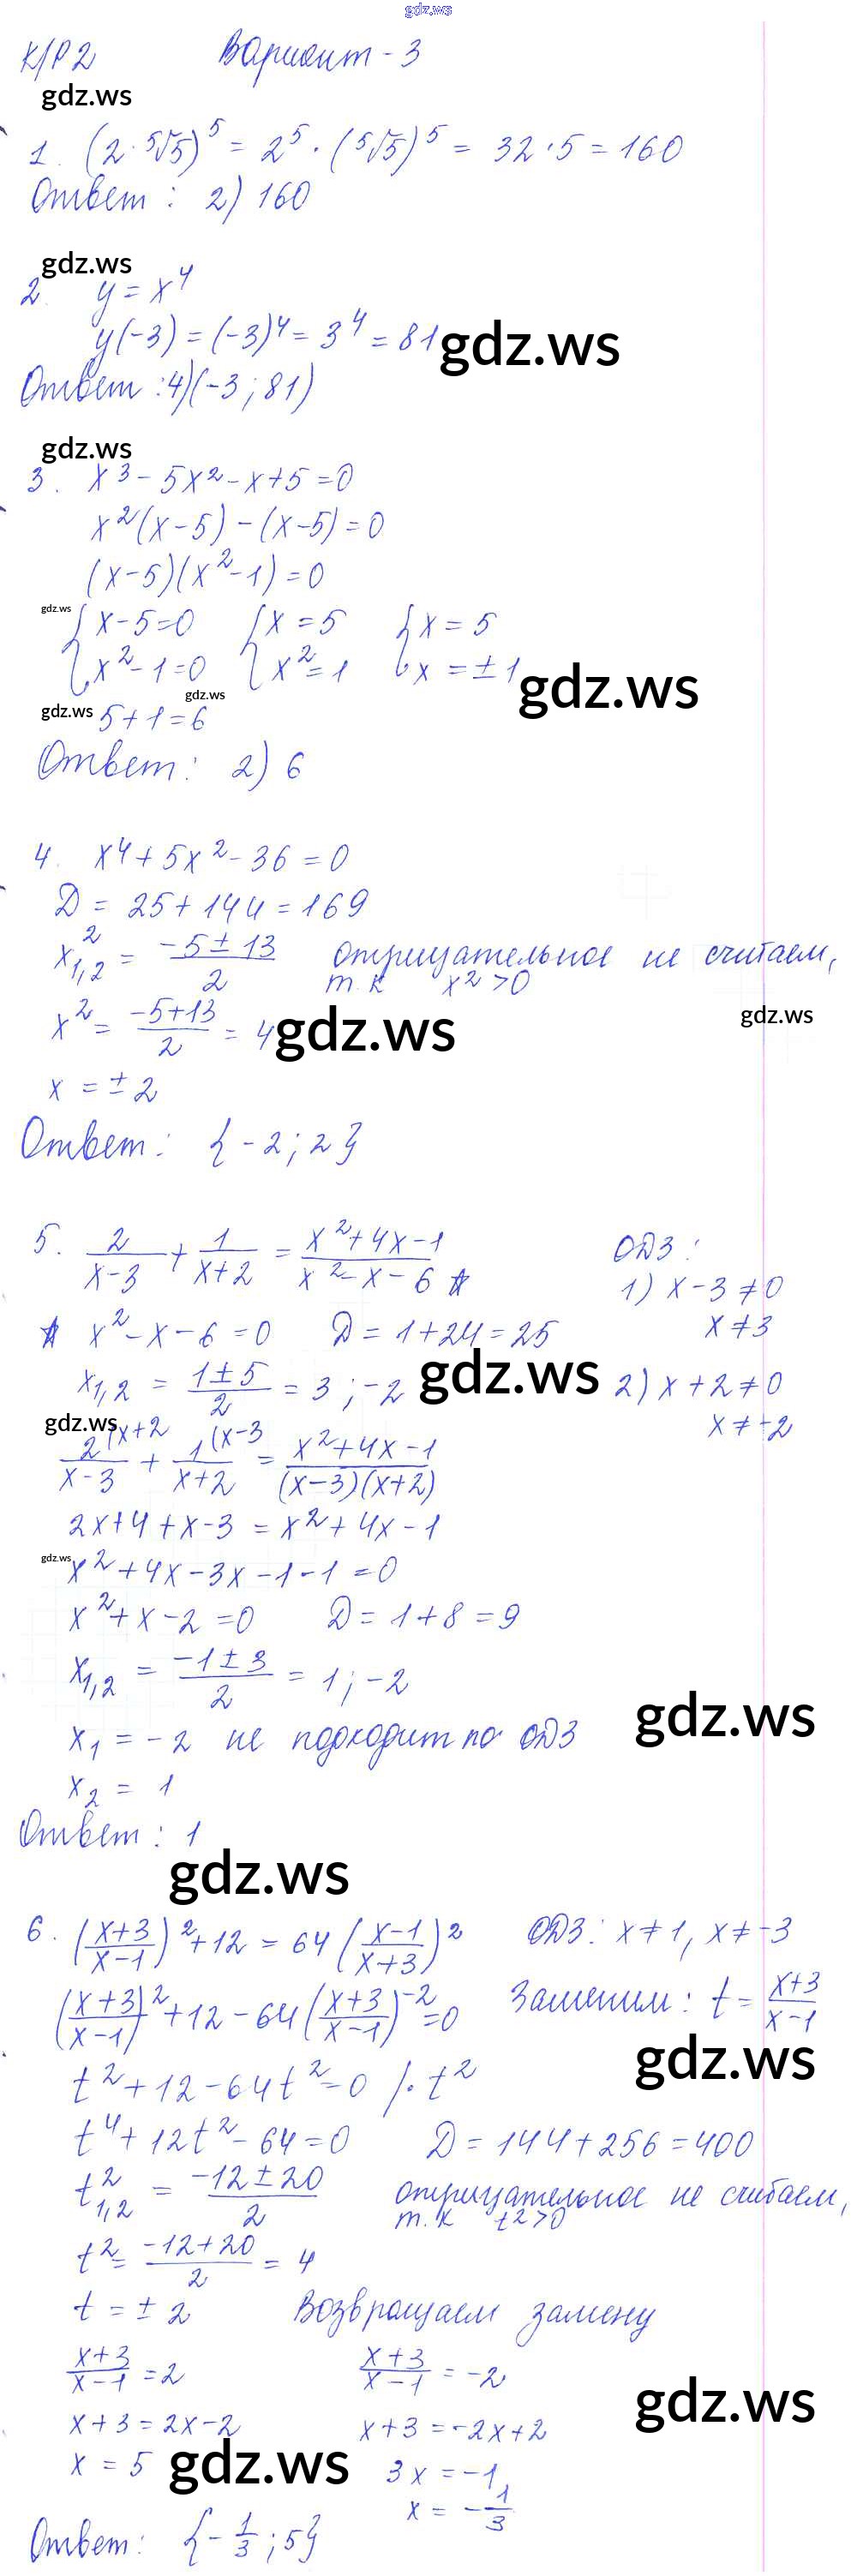 gdz.ws
К/Р 2 Вариант - 3
gdz.ws
1. (2 · ⁵√5)⁵ = 2⁵ · (⁵√5)⁵ = 32 · 5 = 160
Ответ : 2) 160
gdz.ws
2. y = x⁴
y(-3) = (-3)⁴ = 3⁴ = 81
gdz.ws
Ответ : 4) (-3 ; 81)
gdz.ws
3. x³ - 5x² - x + 5 = 0
x²(x - 5) - (x - 5) = 0
(x - 5)(x² - 1) = 0
gdz.ws
{ x - 5 = 0 { x = 5 { x = 5
{ x² - 1 = 0 { x² = 1 { x = ± 1
gdz.ws
gdz.ws
gdz.ws 5 + 1 = 6
Ответ : 2) 6
4. x⁴ + 5x² - 36 = 0
Д = 25 + 144 = 169
x²₁,₂ = (-5 ± 13)/2 отрицательное не считаем,
т.к x² > 0
x² = (-5 + 13)/2 = 4
gdz.ws
gdz.ws
x = ± 2
Ответ : {-2 ; 2}
5. 2/(x-3) + 1/(x+2) = (x² + 4x - 1)/(x² - x - 6) ☆ ОДЗ :
1) x - 3 ≠ 0
☆ x² - x - 6 = 0 Д = 1 + 24 = 25 x ≠ 3
x₁,₂ = (1 ± 5)/2 = 3 ; -2 gdz.ws 2) x + 2 ≠ 0
x ≠ -2
gdz.ws
2(x+2/(x-3) + 1(x-3/(x+2) = (x² + 4x - 1)/((x-3)(x+2))
2x + 4 + x - 3 = x² + 4x - 1
gdz.ws
x² + 4x - 3x - 1 - 1 = 0
x² + x - 2 = 0 Д = 1 + 8 = 9
x₁,₂ = (-1 ± 3)/2 = 1 ; -2
gdz.ws
x₁ = -2 не подходит по ОДЗ
x₂ = 1
Ответ : 1
gdz.ws
6. ((x+3)/(x-1))² + 12 = 64 ((x-1)/(x+3))² ОДЗ : x ≠ 1, x ≠ -3
((x+3)/(x-1))² + 12 - 64 ((x+3)/(x-1))⁻² = 0 Заменим : t = (x+3)/(x-1)
gdz.ws
t² + 12 - 64t² = 0 / · t²
t⁴ + 12t² - 64 = 0 Д = 144 + 256 = 400
t²₁,₂ = (-12 ± 20)/2 отрицательное не считаем,
т.к t² > 0
t² = (-12 + 20)/2 = 4
t = ± 2 Возвращаем замену
(x+3)/(x-1) = 2 (x+3)/(x-1) = -2
gdz.ws
x + 3 = 2x - 2 x + 3 = -2x + 2
x = 5 gdz.ws 3x = -1
x = -1/3
Ответ : {-1/3 ; 5}